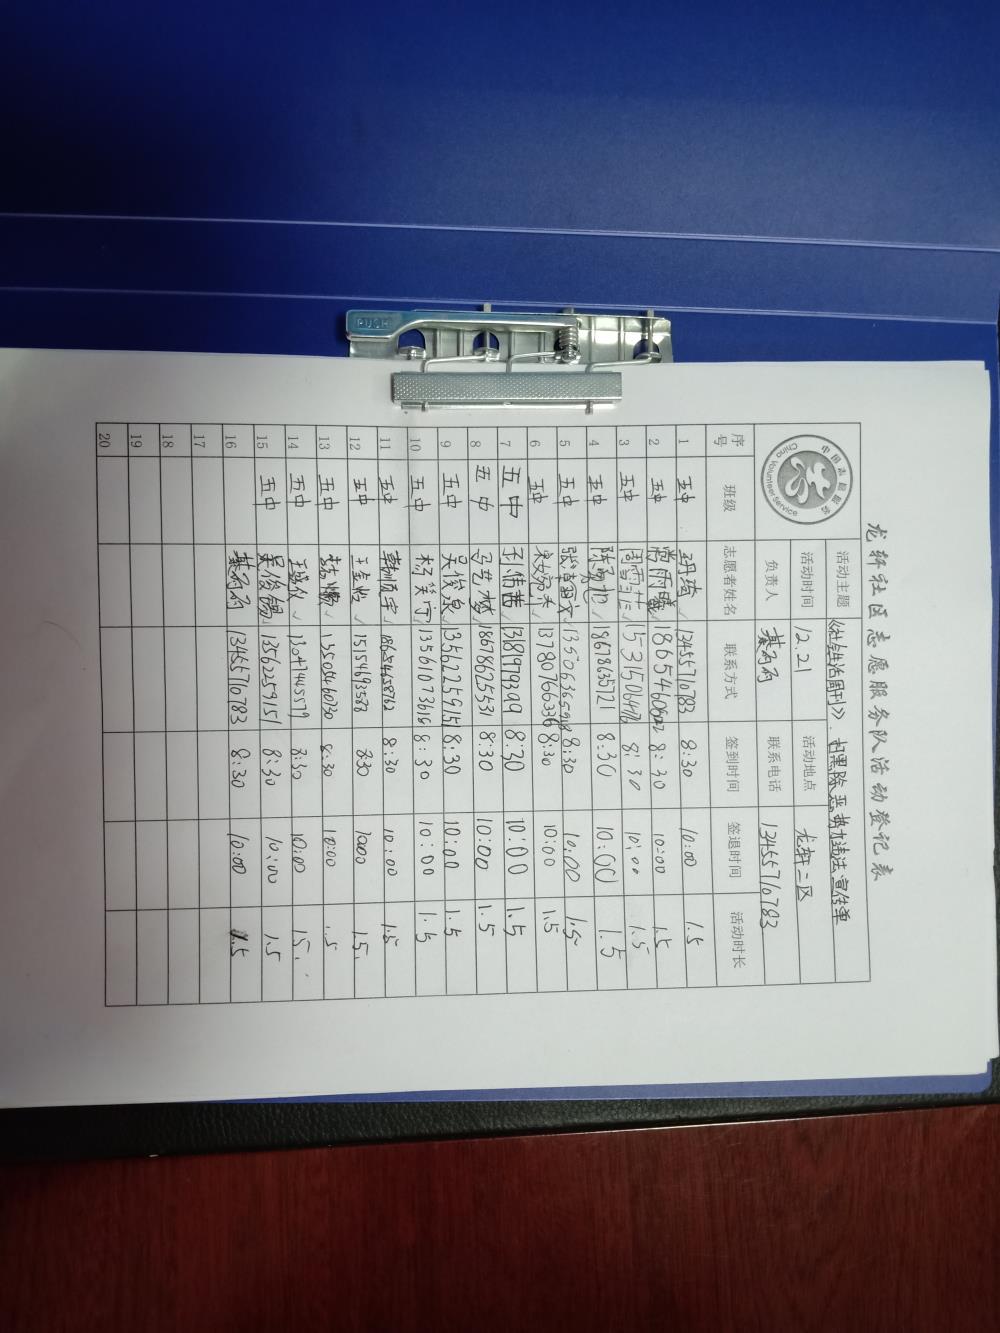 PUSH
龙轩社区志愿服务队活动登记表
中国志愿服务
China Volunteer Service
活动主题 《社生活周刊》、扫黑除恶势力违法宣传单
活动时间 12.21 活动地点 龙轩二区
负责人 联系电话 13455710783
序号 班级 志愿者姓名 联系方式 签到时间 签退时间 活动时长
1 五中 13455710783 8:30 10:00 1.5
2 五中 8:30 10:00 1.5
3 五中 周雪兰 8:30 10:00 1.5
4 五中 18678635721 8:30 10:00 1.5
5 五中 8:30 10:00 1.5
6 五中 13780766336 8:30 10:00 1.5
7 五中 13181979399 8:30 10:00 1.5
8 五中 马艺梦 18678625531 8:30 10:00 1.5
9 五中 吴俊泉 13562259151 8:30 10:00 1.5
10 五中 杨笑宇 13561073616 8:30 10:00 1.5
11 五中 8:30 10:00 1.5
12 五中 王金怡 15154693588 8:30 10:00 1.5
13 五中 13508460730 8:30 10:00 1.5
14 五中 8:30 10:00 1.5
15 五中 吴俊锡 13562259151 8:30 10:00 1.5
16 13455710783 8:30 10:00 1.5
17
18
19
20